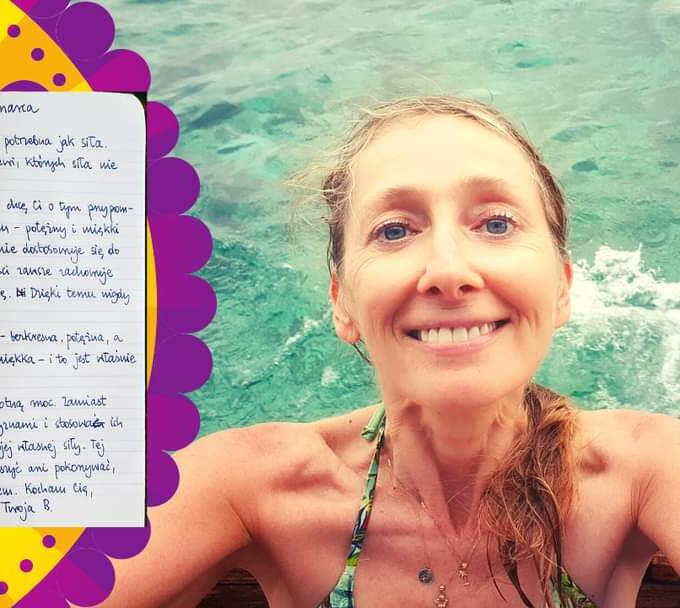 marca
potrzebna jak siła.
których siła nie
chcę Ci o tym przypom-
- potężny i miękki
nie dostosowuje się do
zawsze zachowuje
ę. Dzięki temu nigdy
- bezkresna, potężna, a
miękka - i to jest właśnie
moc. Zamiast
i stosować ich
jej własnej siły. Tej
ani pokonywać,
em. Kocham Cię,
Twoja B.